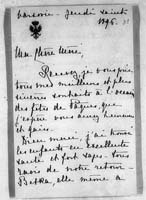 Varsovie. Jeudi saint
1896.
Ma chère Mère,
Recevez, je vous prie,
tous mes meilleurs et plus
sincères souhaits à l'occasion
des fêtes de Pâques, que
j'espère vous aurez heureuses
et gaies.
Dieu merci, j'ai trouvé
les enfants en excellente
santé et fort sages. Tous
ravis de notre retour.
elle même a